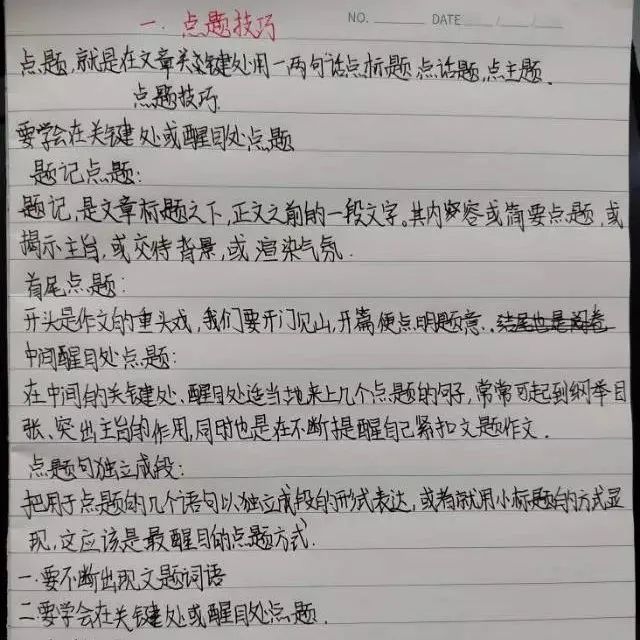 一. 点题技巧
NO. DATE / /
点题,就是在文章关键处用一两句话点标题,点话题,点主题.
点题技巧
要学会在关键处或醒目处点题
题记点题:
题记,是文章标题之下,正文之前的一段文字。其内容或简要点题,或
揭示主旨,或交待背景,或渲染气氛.
首尾点题:
开头是作文的重头戏,我们要开门见山,开篇便点明题意.结尾也是阅卷
中间醒目处点题:
在中间的关键处、醒目处适当地来上几个点题的句子,常常可起到纲举目
张、突出主旨的作用,同时也是在不断提醒自己紧扣文题作文.
点题句独立成段:
把用于点题的几个语句以独立成段的形式表达,或者就用小标题的方式显
现,这应该是最醒目的点题方式.
一.要不断出现文题词语
二.要学会在关键处或醒目处点题.